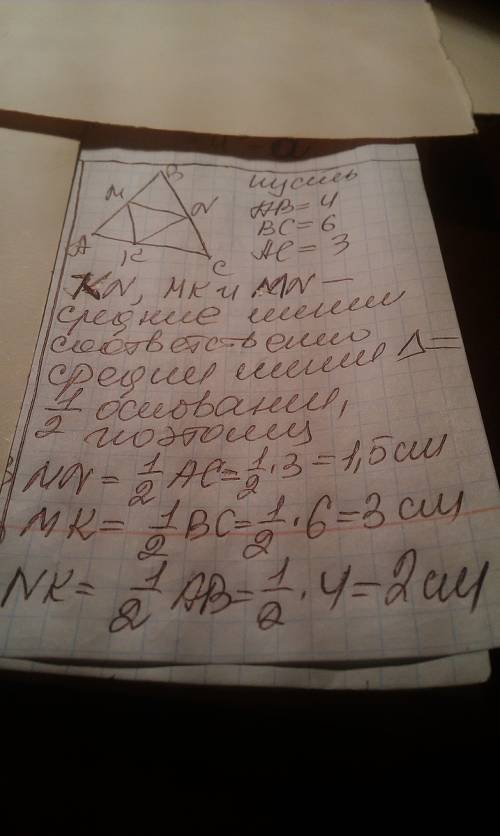 B
M
N
A
K
C
пусть
AB = 4
BC = 6
AC = 3
KN, MK и MN —
средние линии
соответственно
средняя линия Δ =
1/2 основания,
поэтому
MN = 1/2 AC = 1/2 · 3 = 1,5 см
MK = 1/2 BC = 1/2 · 6 = 3 см
NK = 1/2 AB = 1/2 · 4 = 2 см